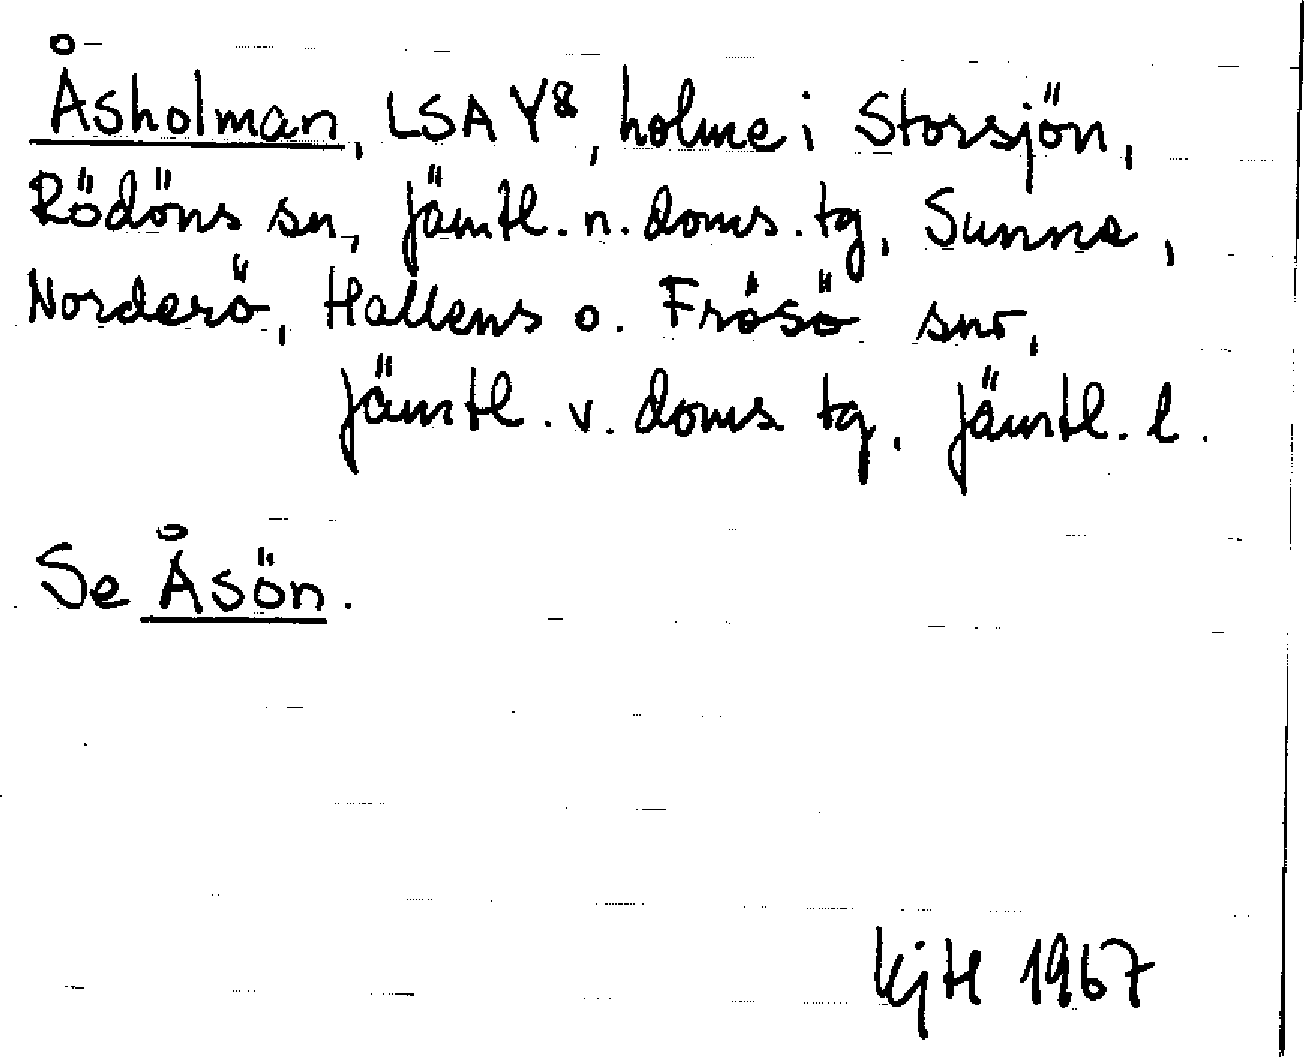 Åsholman, LSA Y8, holme i Storsjön,
Rödöns sn, Jämtl. n. doms. tg, Sunne,
Norderö, Hallens o. Frösö snr,
Jämtl. v. doms. tg, Jämtl. l.
Se Åsön.
KjH 1967